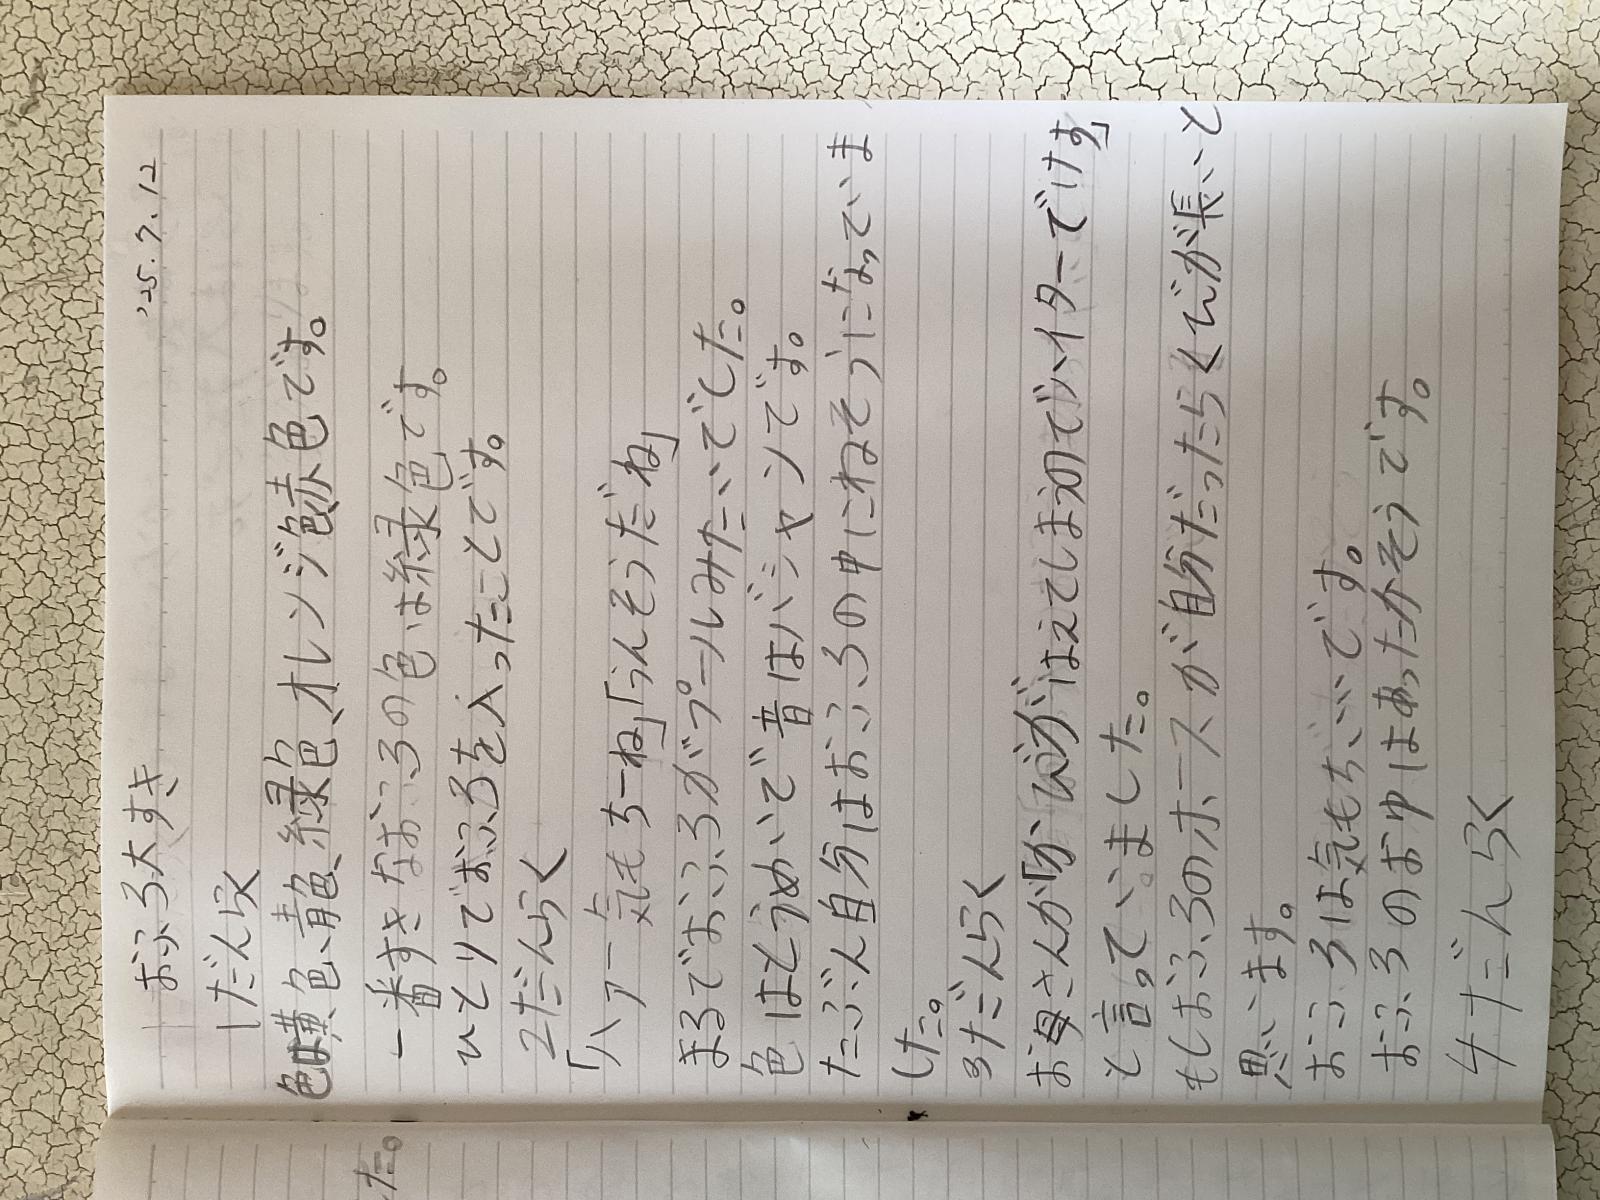 '25.7.12
おふろ大すき
1だんらく
色は黄色、青色、緑色、オレンジ色、赤色です。
一番すきなおふろの色は緑色です。
ひとりでおふろを入ったことです。
2だんらく
「ハァー気もちーね」「うんそうだね」
まるでおふろがプールみたいでした。
色はとうめいで音はバシャンです。
たぶん自分はおふろの中にねそうになっていま
した。
3だんらく
お母さんが「かびがはえてしまうのでハイターでけす」
と言っていました。
もしおふろのホースが自分だったらくびが長いと
思います。
おふろは気もちいいです。
おふろのおゆはあったかそうです。
4だんらく
た。